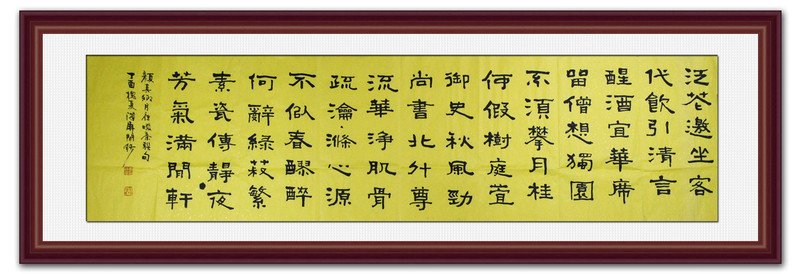 泛花邀坐客
代飲引清言
醒酒宜華席
留僧想獨園
不須攀月桂
何假樹庭萱
御史秋風勁
尚書北斗尊
流華淨肌骨
疏瀹滌心源
不似春醪醉
何辭綠菽繁
素瓷傳靜夜
芳氣滿閒軒
顏真卿月夜啜茶聯句
丁酉 夏